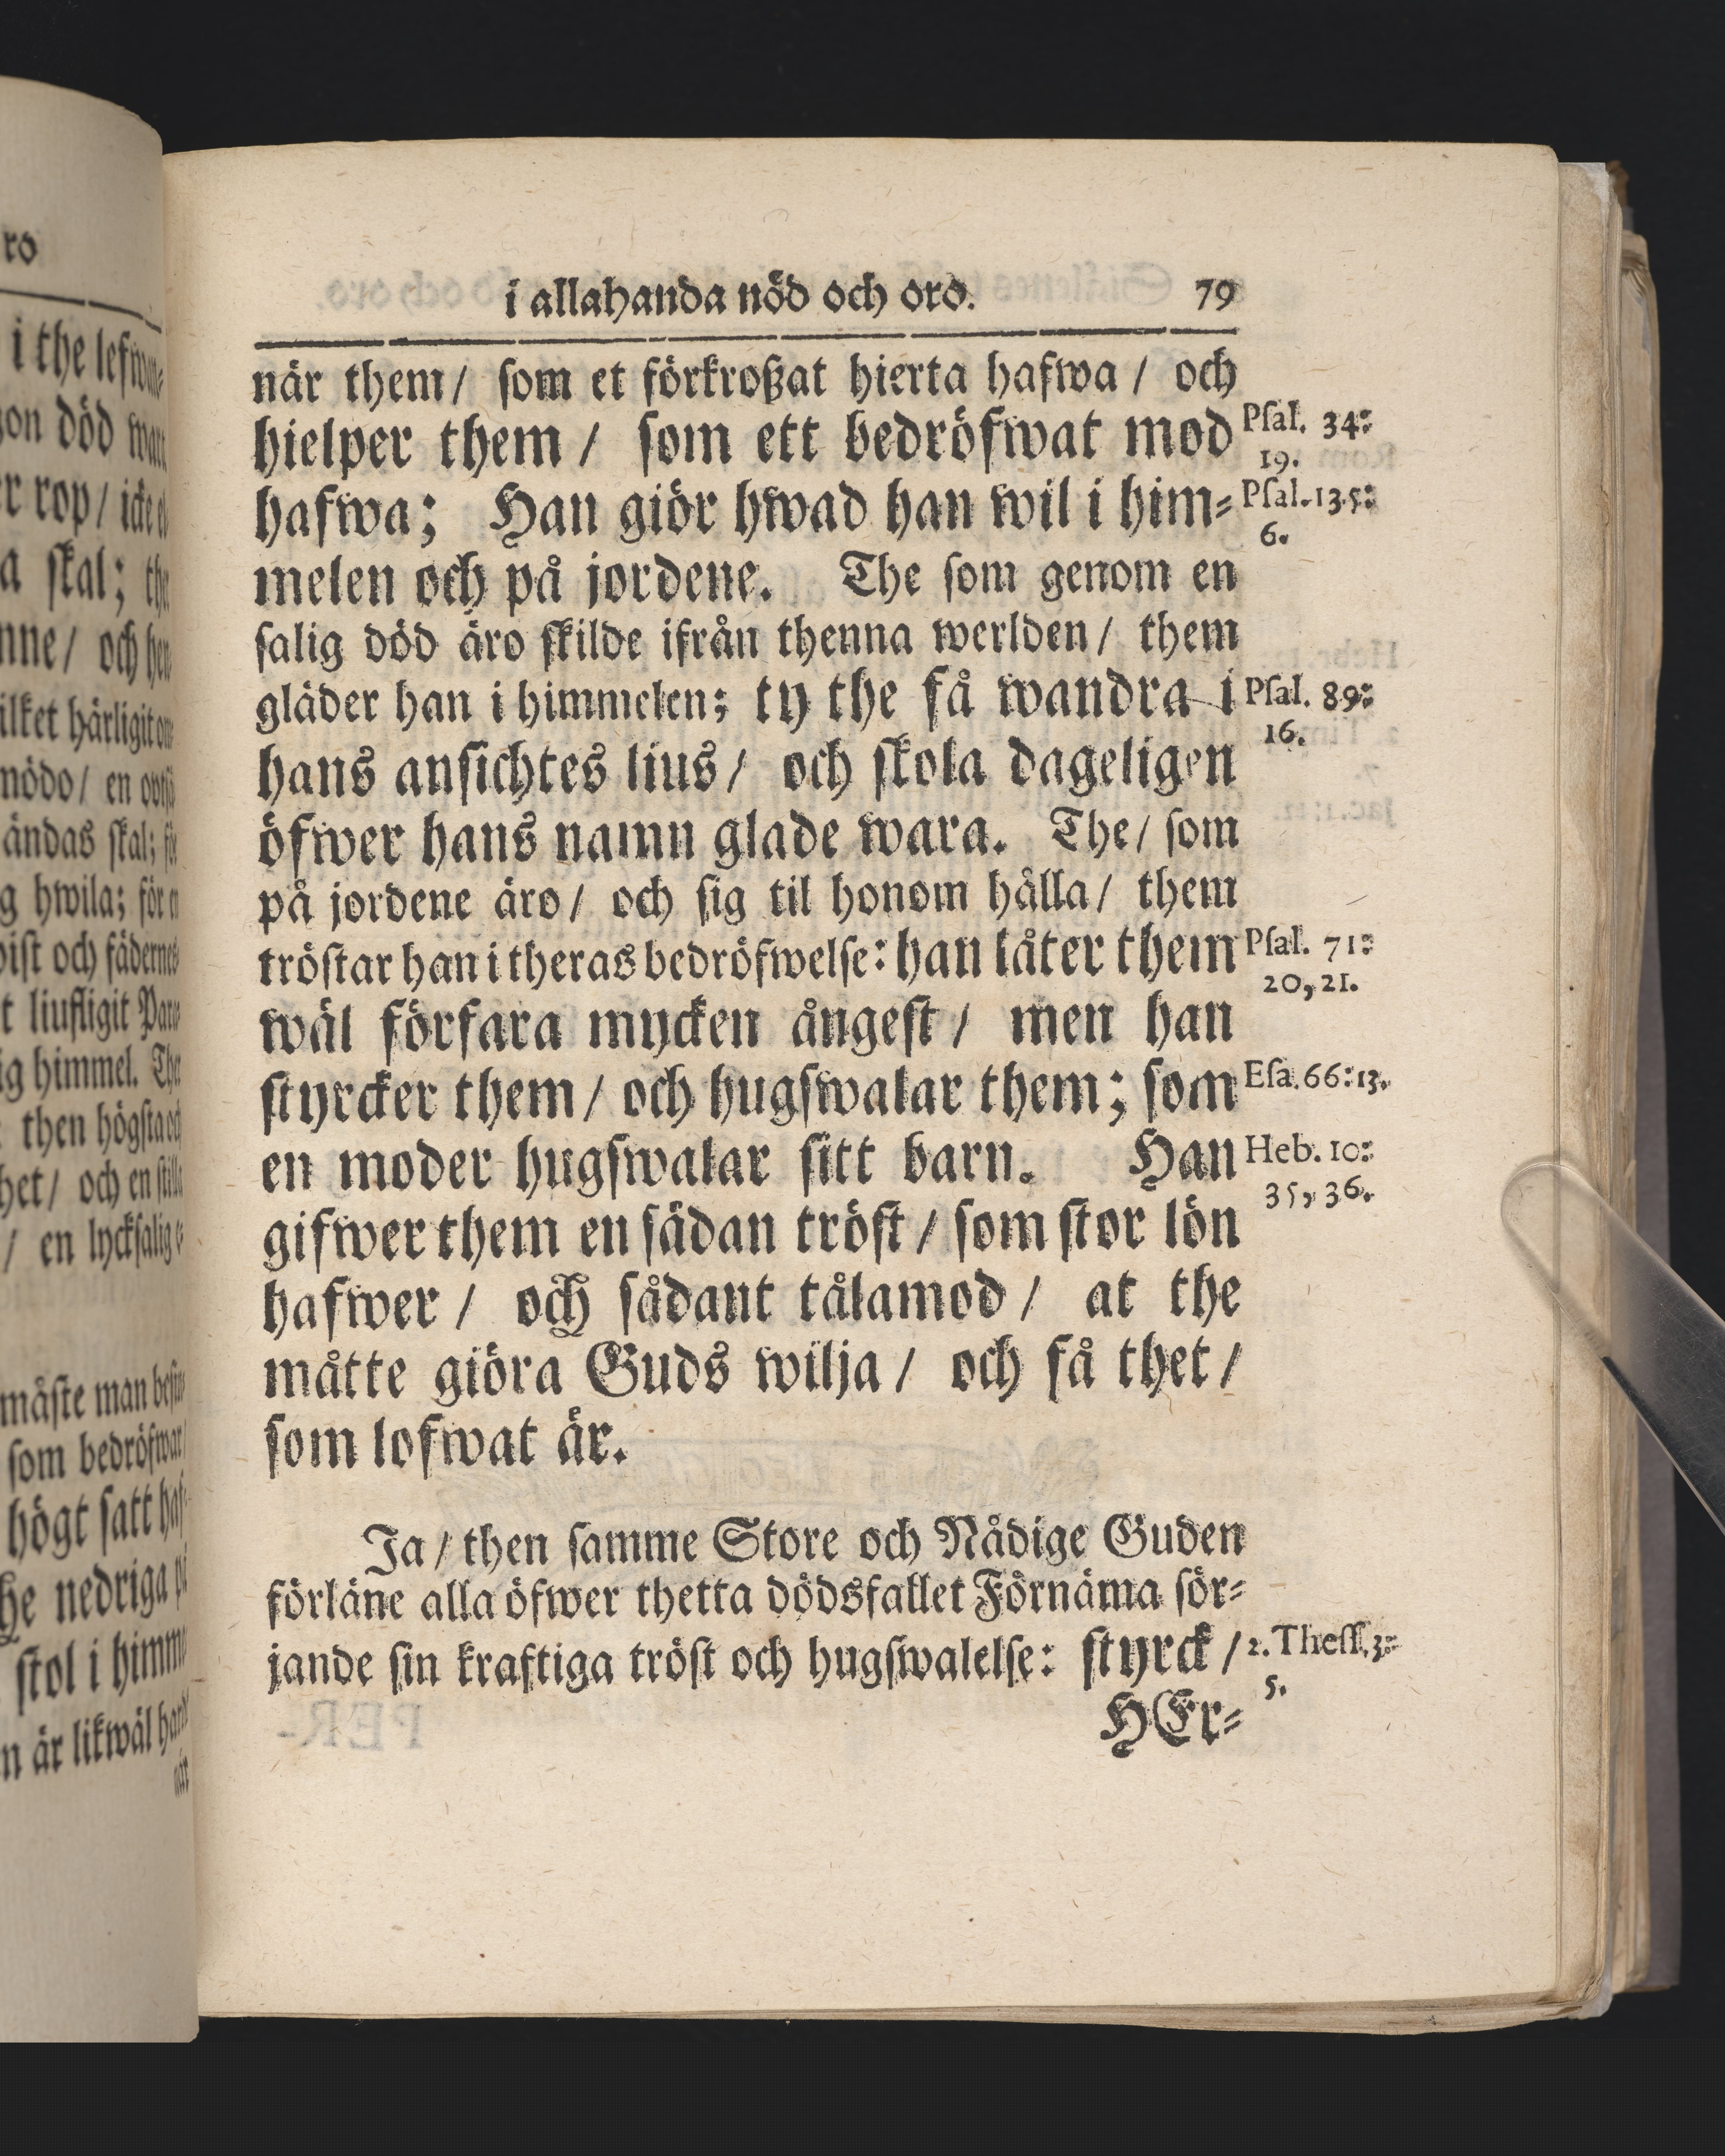 ro
i the lefwan-
gon död wart
er rop/ icke
a skal; the
nne/ och
ilket härligit
mödo/ en
ändas skal;
g hwila; för
och fädernes
t liufligit
ig himmel. The
then högsta
het/ och en
/ en lycksalig
måste man
som bedröfwar
högt satt
he nedriga
stol i
n är likwäl
när
i allahanda nöd och oro. 79
när them/ som et förkroßat hierta hafwa / och
hielper them / som ett bedröfwat mod Psal. 34:
19.
hafwa; Han giör hwad han wil i him- Psal. 135:
6.
melen och på jordene. The som genom en
salig död äro skilde ifrån thenna werlden/ them
gläder han i himmelen; ty the få wandra i Psal. 89:
16.
hans ansichtes lius/ och skola dageligen
öfwer hans namn glade wara. The/ som
på jordene äro/ och sig til honom hålla/ them
tröstar han i theras bedröfwelse: han låter them Psal. 71:
20, 21.
wäl förfara mycken ångest/ men han
styrcker them/ och hugswalar them; som Esa. 66: 13.
en moder hugswalar sitt barn. Han Heb. 10:
35, 36.
gifwer them en sådan tröst / som stor lön
hafwer / och sådant tålamod / at the
måtte giöra Guds wilja / och få thet /
som lofwat är.
Ja / then samme Store och Nådige Guden
förläne alla öfwer thetta dödsfallet Förnäma sör-
jande sin kraftiga tröst och hugswalelse: styrck / 2. Thess. 3:
5.
HEr-